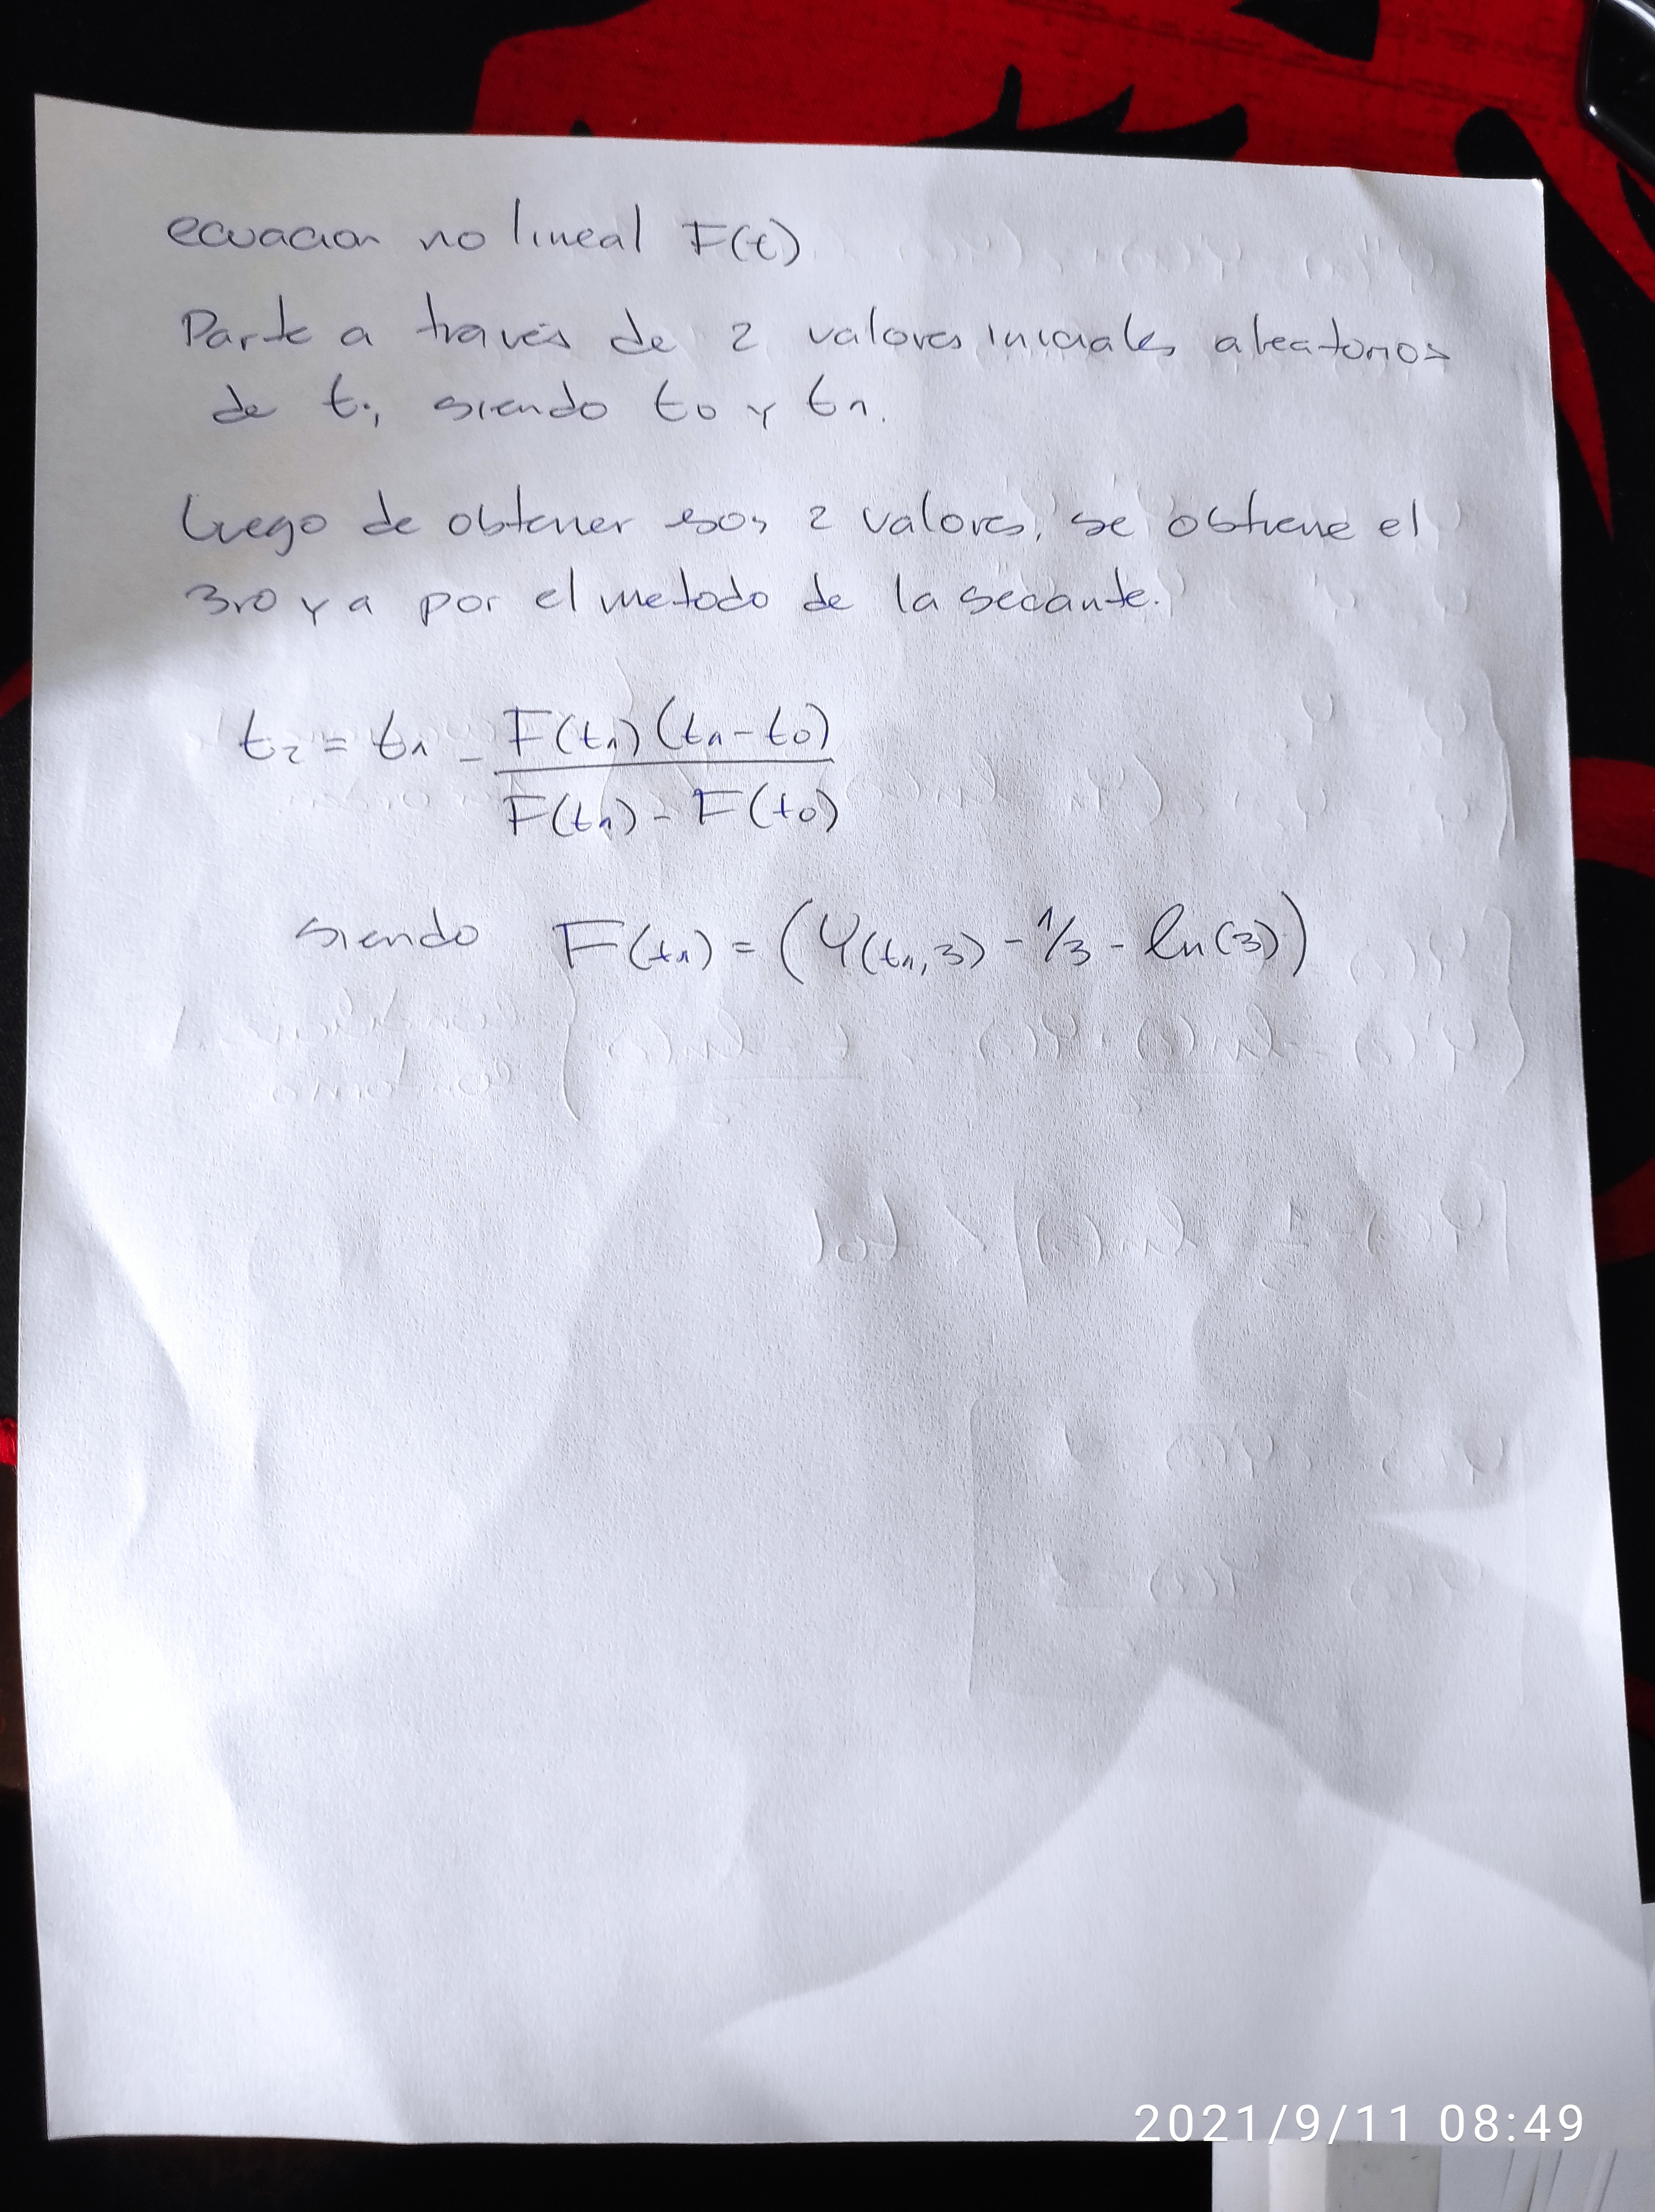 ecuacion no lineal F(t)
Parte a través de 2 valores iniciales aleatorios
de t; siendo t0 y t1.
luego de obtener esos 2 valores, se obtiene el
3ro ya por el metodo de la secante.
t2 = t1 - F(t1)(t1-t0)
F(t1) - F(t0)
siendo F(t1) = (Y(t1,3) - 1/3 - ln(3))
2021/9/11 08:49